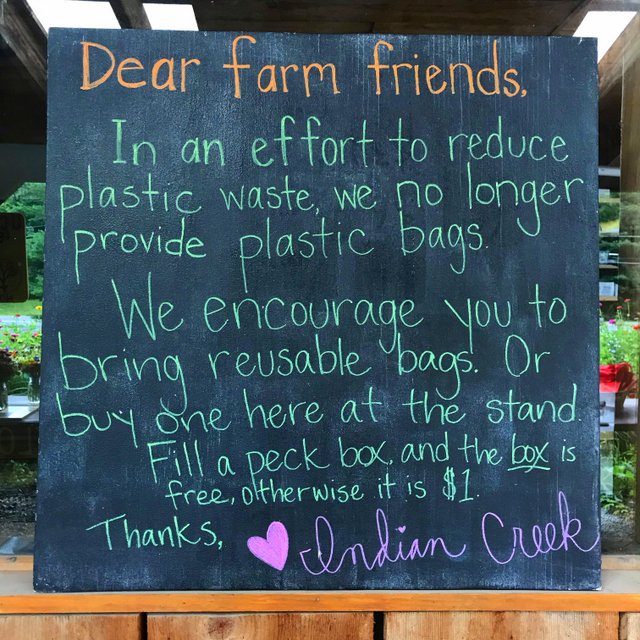 Dear farm friends,
In an effort to reduce
plastic waste, we no longer
provide plastic bags.
We encourage you to
bring reusable bags. Or
buy one here at the stand
Fill a peck box, and the box is
free, otherwise it is $1.
Thanks, Indian Creek